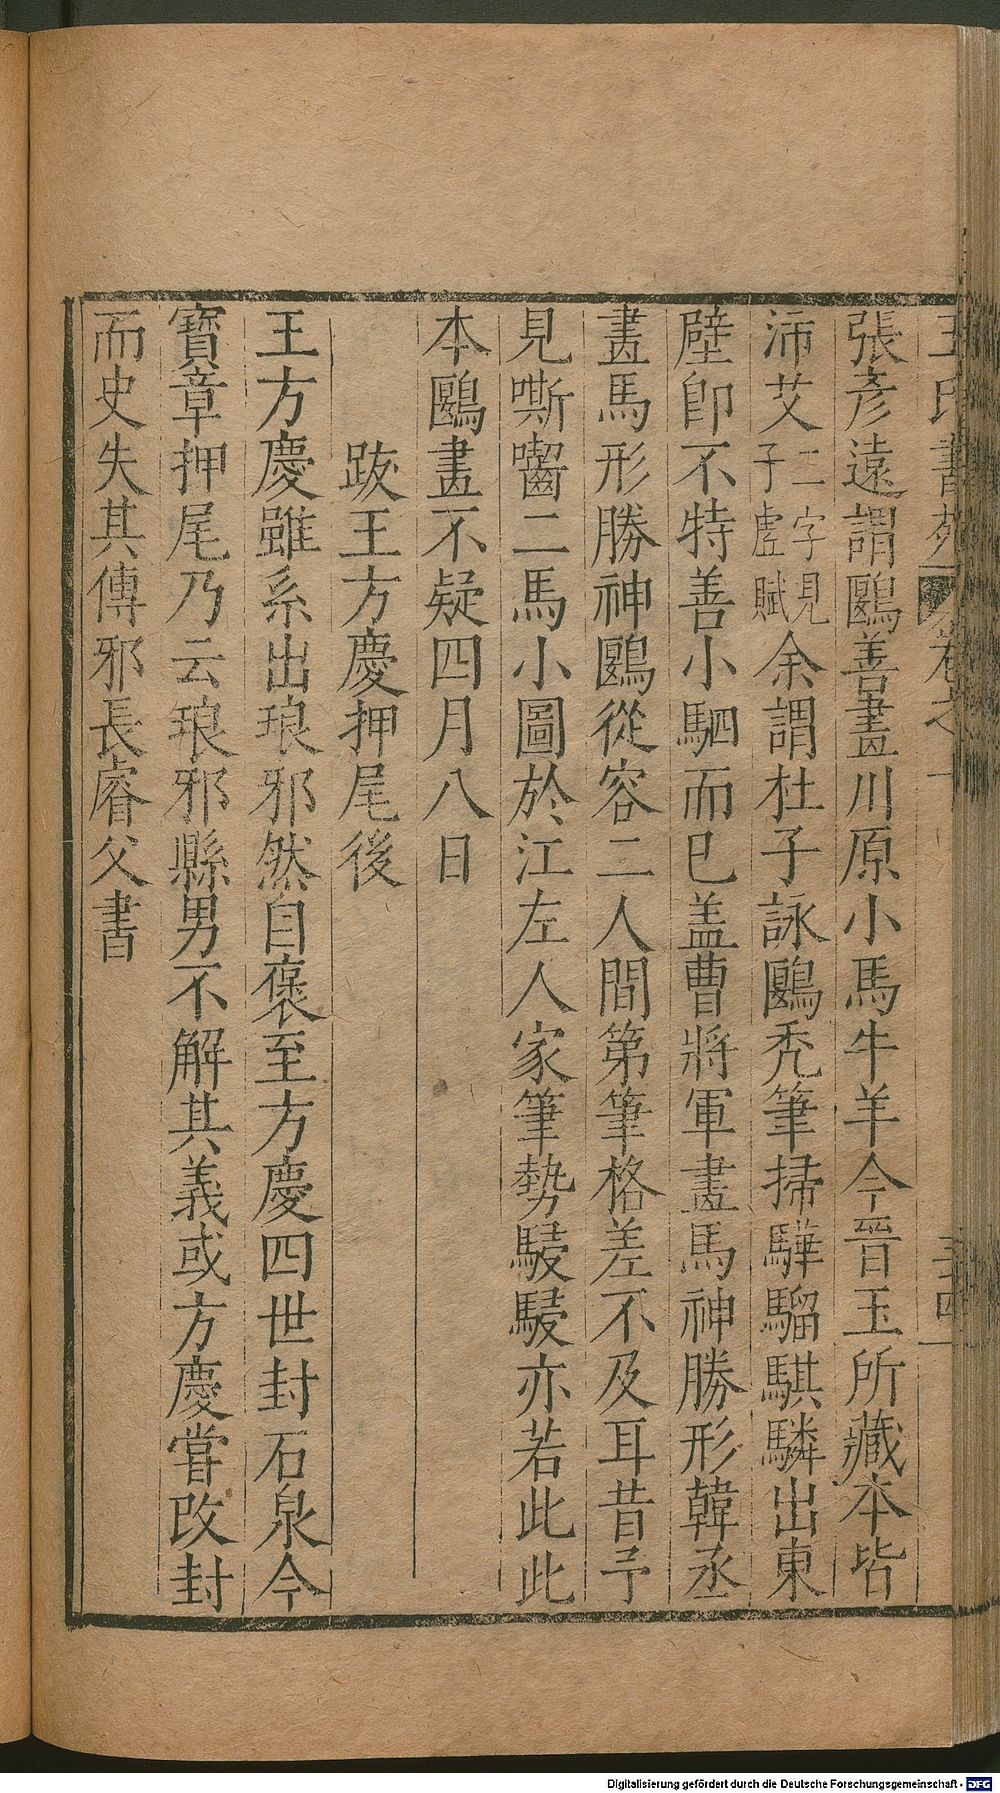 王氏書苑 卷之十 三十四
張彥遠謂鷗善畫川原小馬牛羊今晉玉所藏本皆
沛艾二字見子虛賦余謂杜子詠鷗禿筆掃驊騮騏驎出東
壁卽不特善小駟而已盖曹將軍畫馬神勝形韓丞
畫馬形勝神鷗從容二人間第筆格差不及耳昔予
見嘶囓二馬小圖於江左人家筆勢駸駸亦若此此
本鷗畫不疑四月八日
跋王方慶押尾後
王方慶雖系出琅邪然自褒至方慶四世封石泉今
寶章押尾乃云琅邪縣男不解其義或方慶嘗改封
而史失其傳邪長睿父書
Digitalisierung gefördert durch die Deutsche Forschungsgemeinschaft - DFG